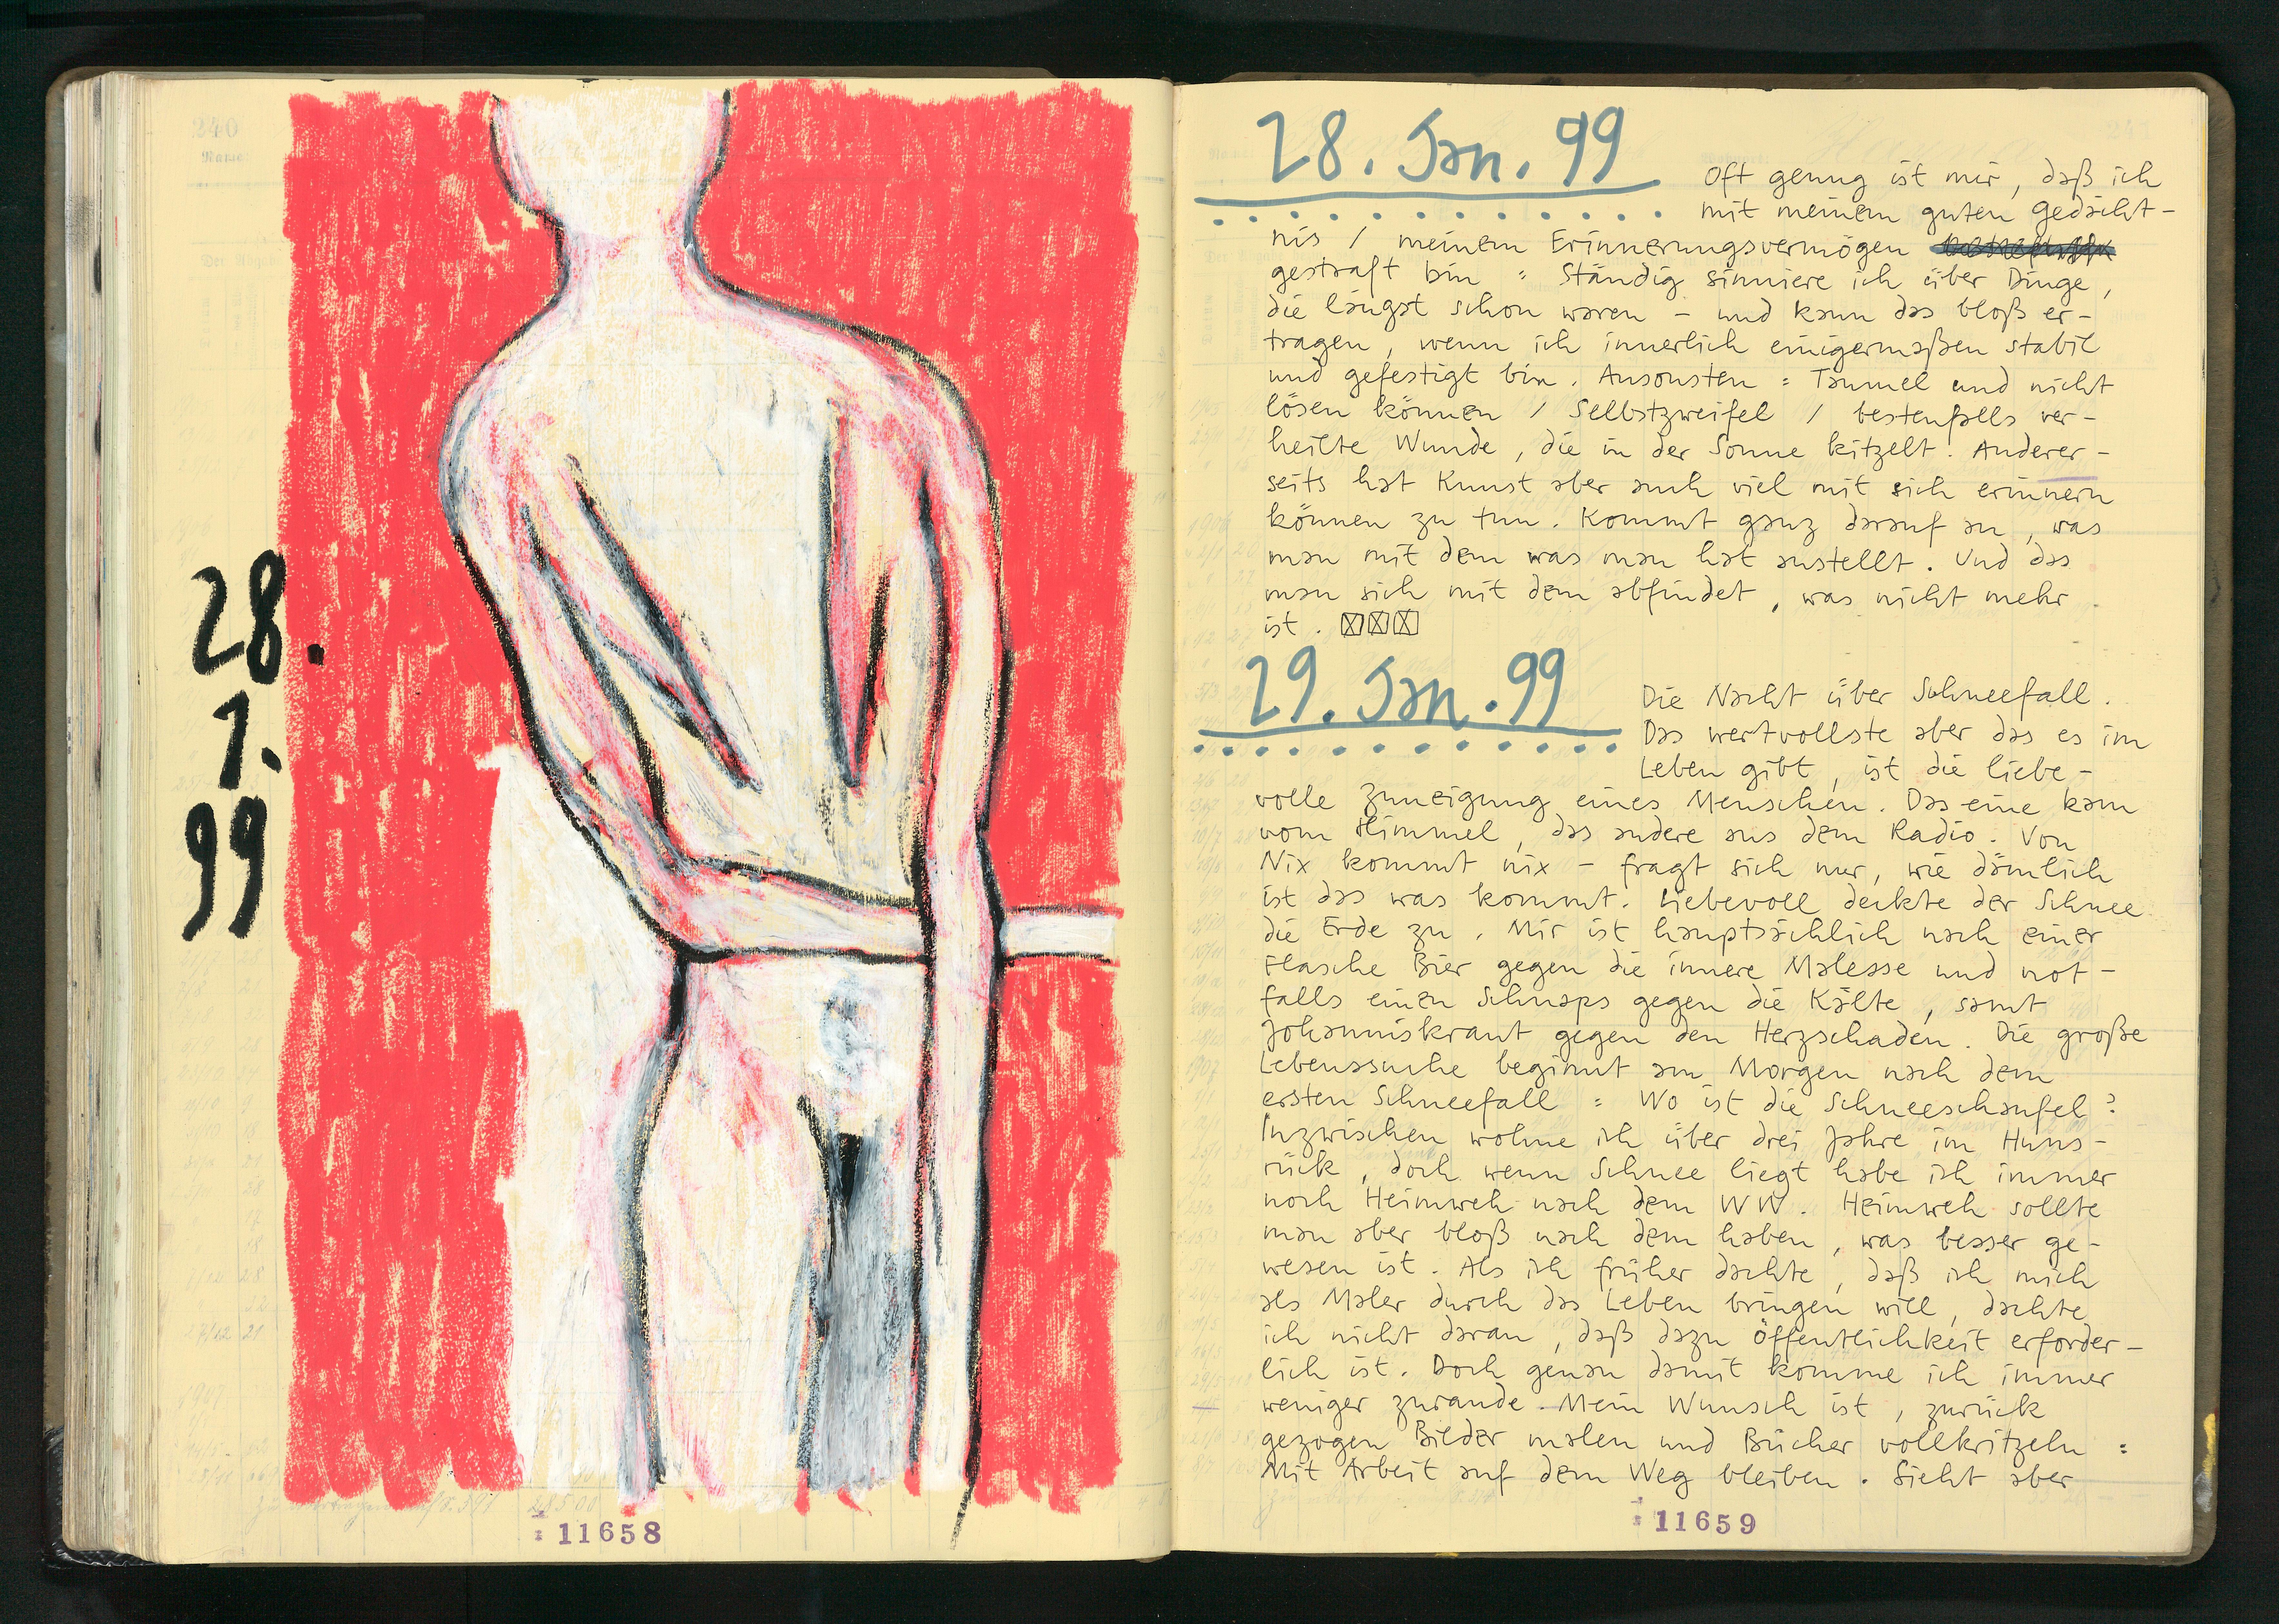 240
Name:
28.
1.
99
11658
28. Jan. 99
Oft genug ist mir, daß ich
mit meinem guten Gedächt-
nis / meinem Erinnerungsvermögen
gestraft bin : Ständig sinniere ich über Dinge,
die längst schon waren – und kann das bloß er-
tragen, wenn ich innerlich einigermaßen stabil
und gefestigt bin. Ansonsten : Taumel und nicht
lösen können / Selbstzweifel / bestenfalls ver-
heilte Wunde, die in der Sonne kitzelt. Anderer-
seits hat Kunst aber auch viel mit sich erinnern
können zu tun. Kommt ganz darauf an, was
man mit dem was man hat anstellt. Und das
man sich mit dem abfindet, was nicht mehr
ist.
29. Jan. 99
Die Nacht über Schneefall.
Das wertvollste aber das es im
Leben gibt, ist die liebe-
volle Zuneigung eines Menschen. Das eine kam
vom Himmel, das andere aus dem Radio. Von
Nix kommt nix – fragt sich nur, wie dämlich
ist das was kommt. Liebevoll deckte der Schnee
die Erde zu. Mir ist hauptsächlich nach einer
Flasche Bier gegen die innere Malesse und not-
falls einen Schnaps gegen die Kälte, samt
Johanniskraut gegen den Herzschaden. Die große
Lebenssuche beginnt am Morgen nach dem
ersten Schneefall : Wo ist die Schneeschaufel?
Inzwischen wohne ich über drei Jahre im Huns-
rück, doch wenn Schnee liegt habe ich immer
noch Heimweh nach dem WW. Heimweh sollte
man aber bloß nach dem haben, was besser ge-
wesen ist. Als ich früher dachte, daß ich mich
als Maler durch das Leben bringen will, dachte
ich nicht daran, daß dazu Öffentlichkeit erforder-
lich ist. Doch genau damit komme ich immer
weniger zurande. Mein Wunsch ist, zurück
gezogen Bilder malen und Bücher vollkritzeln :
Mit Arbeit auf dem Weg bleiben. Sieht aber
11659